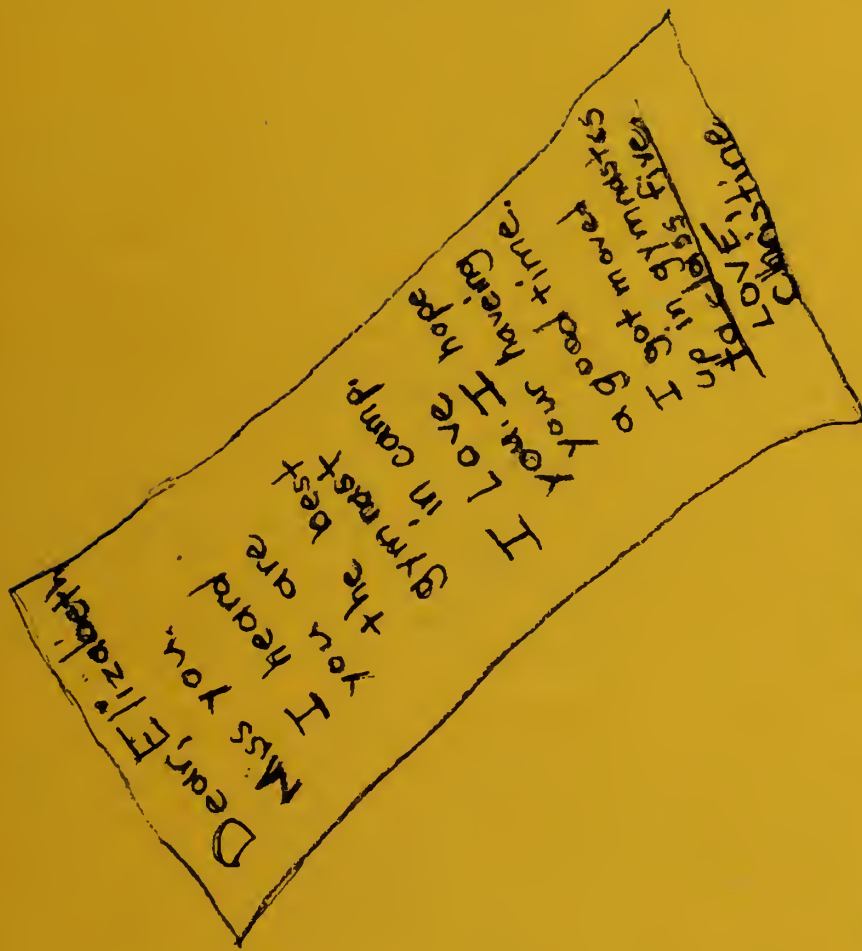 Dear, Elizabeth
Miss you.
I heard
you are
the best
gymnast
in camp.
I Love
you. I hope
your haveing
a good time.
I got moved
up in gymnastes
to class five
LOVE,
Christine